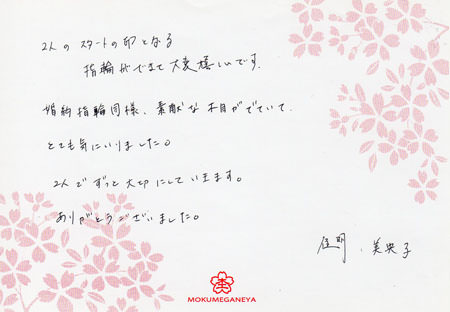 2人のスタートの印となる
指輪ができて大変嬉しいです。
婚約指輪同様、素敵な木目がでていて、
とても気にいりました。
2人でずっと大切にしていきます。
ありがとうございました。
佳明、美央子
杢
MOKUMEGANEYA